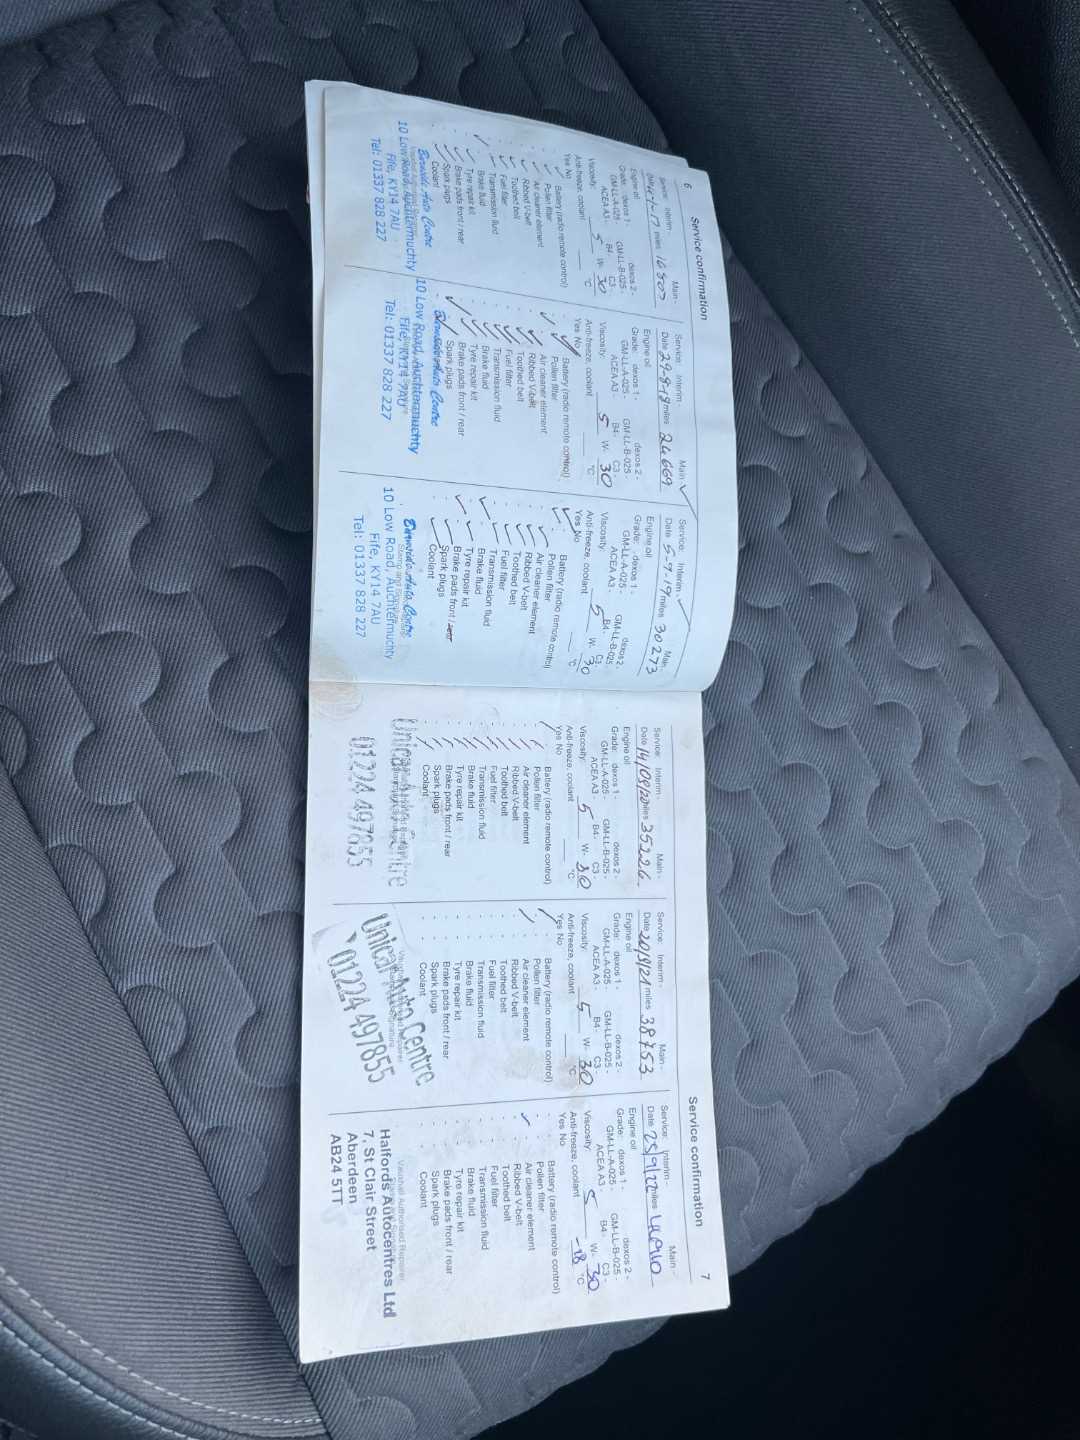 6
Service confirmation
Service: Interim - Main -
miles 16807
Engine oil
Grade: dexos 1 - dexos 2 -
GM-LL-A-025 - GM-LL-B-025 -
ACEA A3 - B4 - C3 -
Viscosity: 5 W- 30
Anti-freeze, coolant °C
Yes No
Battery (radio remote control)
Pollen filter
Air cleaner element
Ribbed V-belt
Toothed belt
Fuel filter
Transmission fluid
Brake fluid
Tyre repair kit
Brake pads front / rear
Spark plugs
Coolant
Burnside Auto Centre
10 Low Road, Auchtermuchty
Fife, KY14 7AU
Tel: 01337 828 227
Service: Interim - Main
Date 29-8-18 miles 24669
Engine oil
Grade: dexos 1 - dexos 2 -
GM-LL-A-025 - GM-LL-B-025
ACEA A3 - B4 - C3 -
Viscosity: 5 W- 30
Anti-freeze, coolant °C
Yes No
Battery (radio remote control)
Pollen filter
Air cleaner element
Ribbed V-belt
Toothed belt
Fuel filter
Transmission fluid
Brake fluid
Tyre repair kit
Brake pads front / rear
Spark plugs
Burnside Auto Centre
10 Low Road, Auchtermuchty
Fife, KY14 7AU
Tel: 01337 828 227
Service: Interim - Main
Date 5-9-19 miles 30273
Engine oil
Grade: dexos 1 - dexos 2 -
GM-LL-A-025 - GM-LL-B-025 -
ACEA A3 - B4 - C3 -
Viscosity: 5 W- 30
Anti-freeze, coolant °C
Yes No
Battery (radio remote control)
Pollen filter
Air cleaner element
Ribbed V-belt
Toothed belt
Fuel filter
Transmission fluid
Brake fluid
Tyre repair kit
Brake pads front / rear
Spark plugs
Coolant
Burnside Auto Centre
10 Low Road, Auchtermuchty
Fife, KY14 7AU
Tel: 01337 828 227
Service confirmation
7
Service: Interim - Main -
Date 14/09/20 miles 35226
Engine oil
Grade: dexos 1 - dexos 2 -
GM-LL-A-025 - GM-LL-B-025 -
ACEA A3 - B4 - C3 -
Viscosity: 5 W- 30
Anti-freeze, coolant °C
Yes No
Battery (radio remote control)
Pollen filter
Air cleaner element
Ribbed V-belt
Toothed belt
Fuel filter
Transmission fluid
Brake fluid
Tyre repair kit
Brake pads front / rear
Spark plugs
Coolant
Unicar Auto Centre
01224 497855
Service: Interim - Main -
Date 20/9/21 miles 38753
Engine oil
Grade: dexos 1 - dexos 2 -
GM-LL-A-025 - GM-LL-B-025 -
ACEA A3 - B4 - C3 -
Viscosity: 5 W- 30
Anti-freeze, coolant °C
Yes No
Battery (radio remote control)
Pollen filter
Air cleaner element
Ribbed V-belt
Toothed belt
Fuel filter
Transmission fluid
Brake fluid
Tyre repair kit
Brake pads front / rear
Spark plugs
Coolant
Unicar Auto Centre
01224 497855
Service: Interim - Main -
Date 25/9/22 miles
Engine oil
Grade: dexos 1 - dexos 2 -
GM-LL-A-025 - GM-LL-B-025 -
ACEA A3 - B4 - C3 -
Viscosity: 5 W- 30
Anti-freeze, coolant -18 °C
Yes No
Battery (radio remote control)
Pollen filter
Air cleaner element
Ribbed V-belt
Toothed belt
Fuel filter
Transmission fluid
Brake fluid
Tyre repair kit
Brake pads front / rear
Spark plugs
Coolant
Vauxhall Authorised Repairer
Halfords Autocentres Ltd
7, St Clair Street
Aberdeen
AB24 5TT